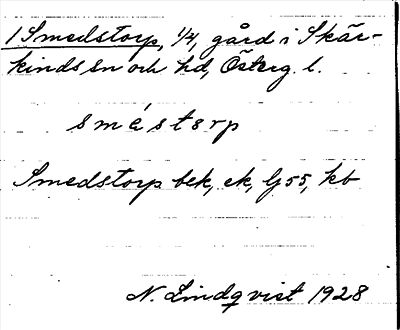 1 Smedstorp, 1/4, gård i Skär-
kinds sn och hd, Österg. l.
sméstơrp
Smedstorp bek, ek, Gj 55, kb
N. Lindqvist 1928